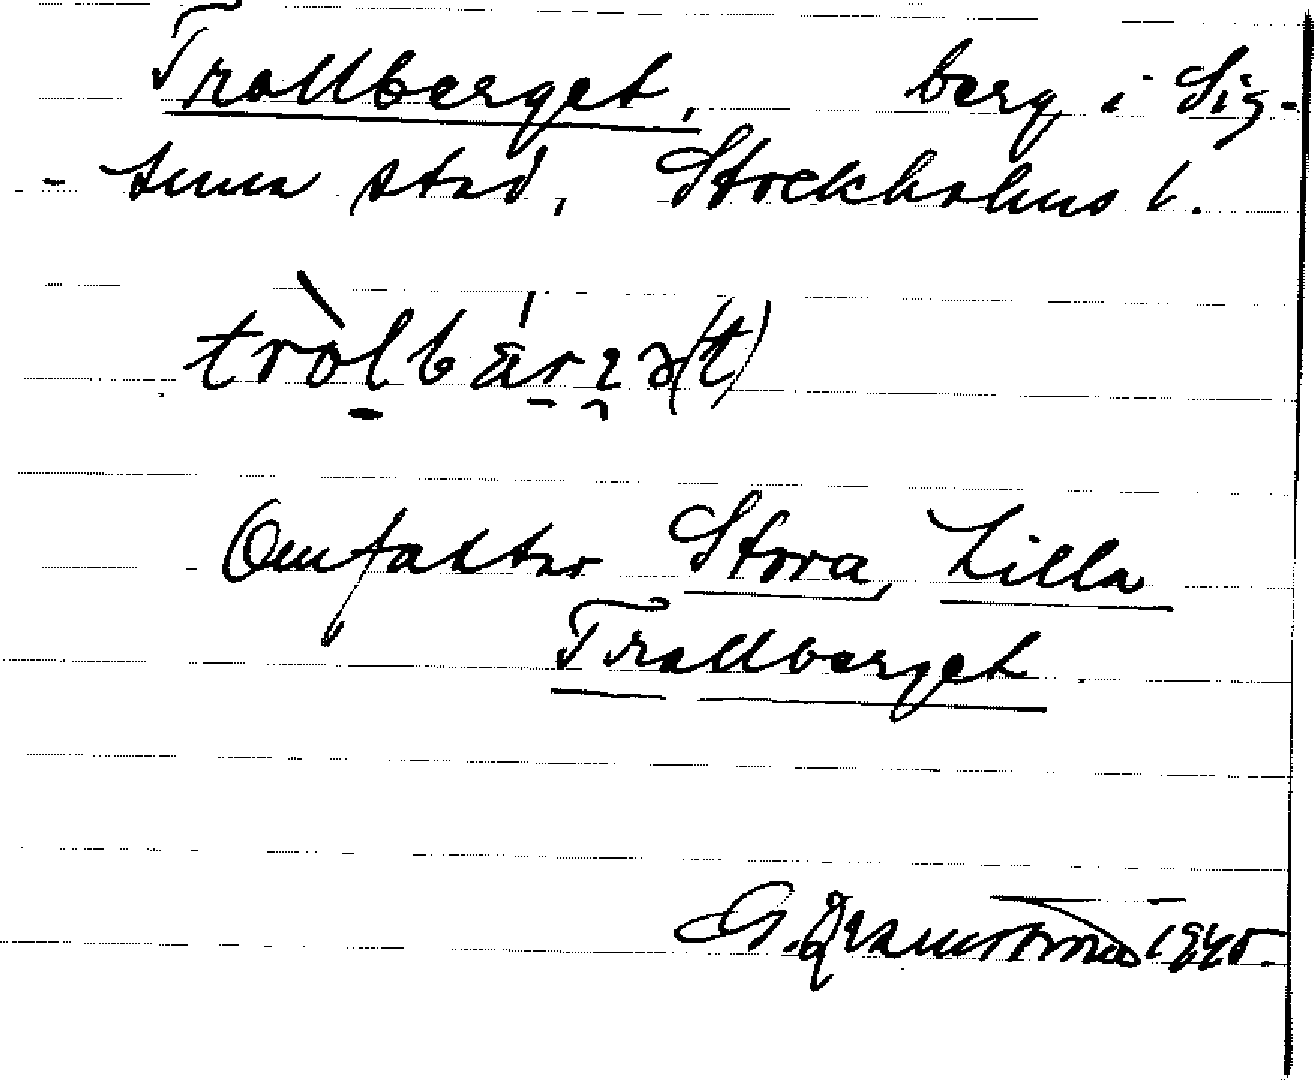 Trollberget, berg i Sig-
tuna stad, Stockholms l.
tròlbár ə(t)
Omfattar Stora, Lilla
Trollberget
G. 1940.